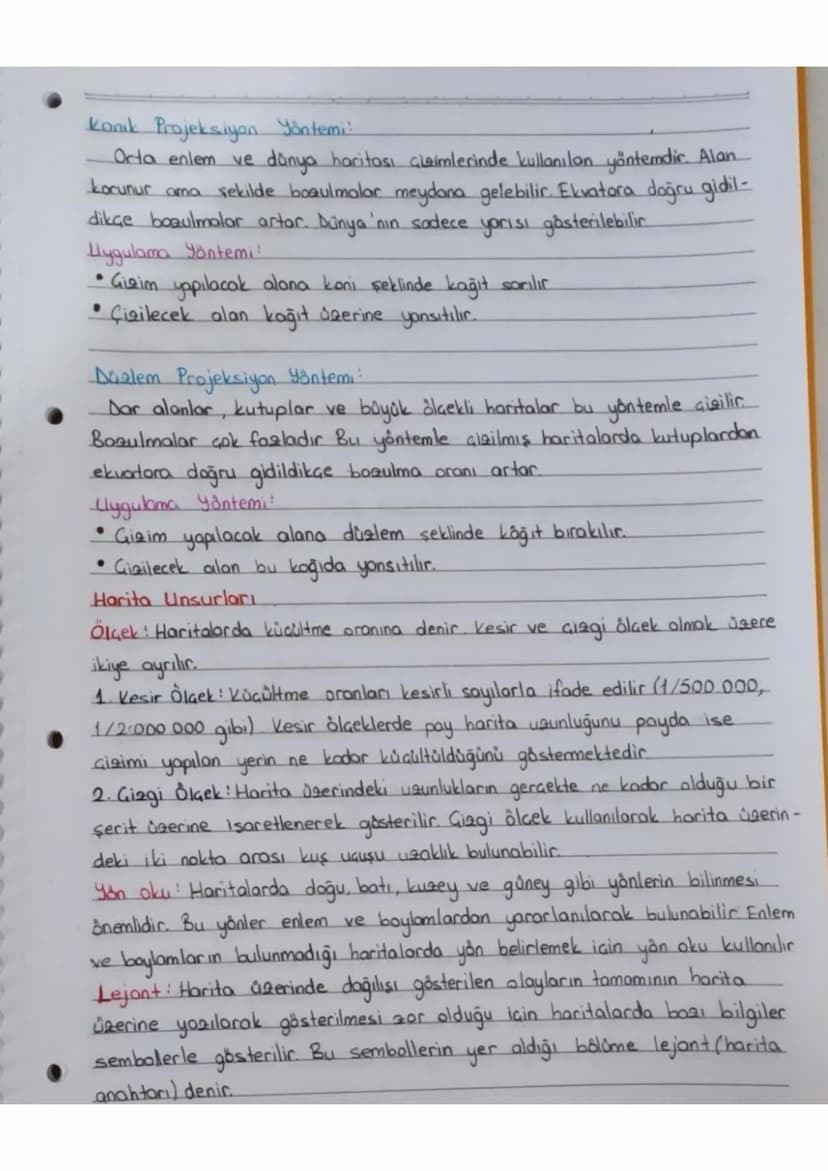 Konik Projeksiyon Yöntemi:
Orta enlem ve dünya haritası çizimlerinde kullanılan yöntemdir. Alan
korunur ama şekilde bozulmalar meydana gelebilir. Ekvatora doğru gidil-
dikçe bozulmalar artar. Dünya'nın sadece yarısı gösterilebilir.
Uygulama Yöntemi:
• Çizim yapılacak alana koni şeklinde kağıt sarılır
• Çizilecek alan kağıt üzerine yansıtılır.
Düzlem Projeksiyon Yöntemi:
Dar alanlar, kutuplar ve büyük ölçekli haritalar bu yöntemle çizilir.
Bozulmalar çok fazladır Bu yöntemle çizilmiş haritalarda kutuplardan
ekvatora doğru gidildikçe bozulma oranı artar.
Uygulama Yöntemi:
• Çizim yapılacak alana düzlem şeklinde kâğıt bırakılır.
• Çizilecek alan bu kağıda yansıtılır.
Harita Unsurları
Ölçek: Haritalarda küçültme oranına denir. Kesir ve çizgi ölçek olmak üzere
ikiye ayrılır.
1. Kesir Ölçek: Küçültme oranları kesirli sayılarla ifade edilir (1/500.000,
1/2.000.000 gibi). Kesir ölçeklerde pay harita uzunluğunu payda ise
çizimi yapılan yerin ne kadar küçültüldüğünü göstermektedir.
2. Çizgi Ölçek: Harita üzerindeki uzunlukların gerçekte ne kadar olduğu bir
şerit üzerine işaretlenerek gösterilir. Çizgi ölçek kullanılarak harita üzerin-
deki iki nokta arası kuş uçuşu uzaklık bulunabilir.
Yön oku: Haritalarda doğu, batı, kuzey ve güney gibi yönlerin bilinmesi
önemlidir. Bu yönler enlem ve boylamlardan yararlanılarak bulunabilir Enlem
ve boylamların bulunmadığı haritalarda yön belirlemek için yön oku kullanılır
Lejant: Harita üzerinde dağılışı gösterilen olayların tamamının harita
üzerine yazılarak gösterilmesi zor olduğu için haritalarda bazı bilgiler
sembolerle gösterilir. Bu sembollerin yer aldığı bölüme lejant (harita
anahtarı) denir.